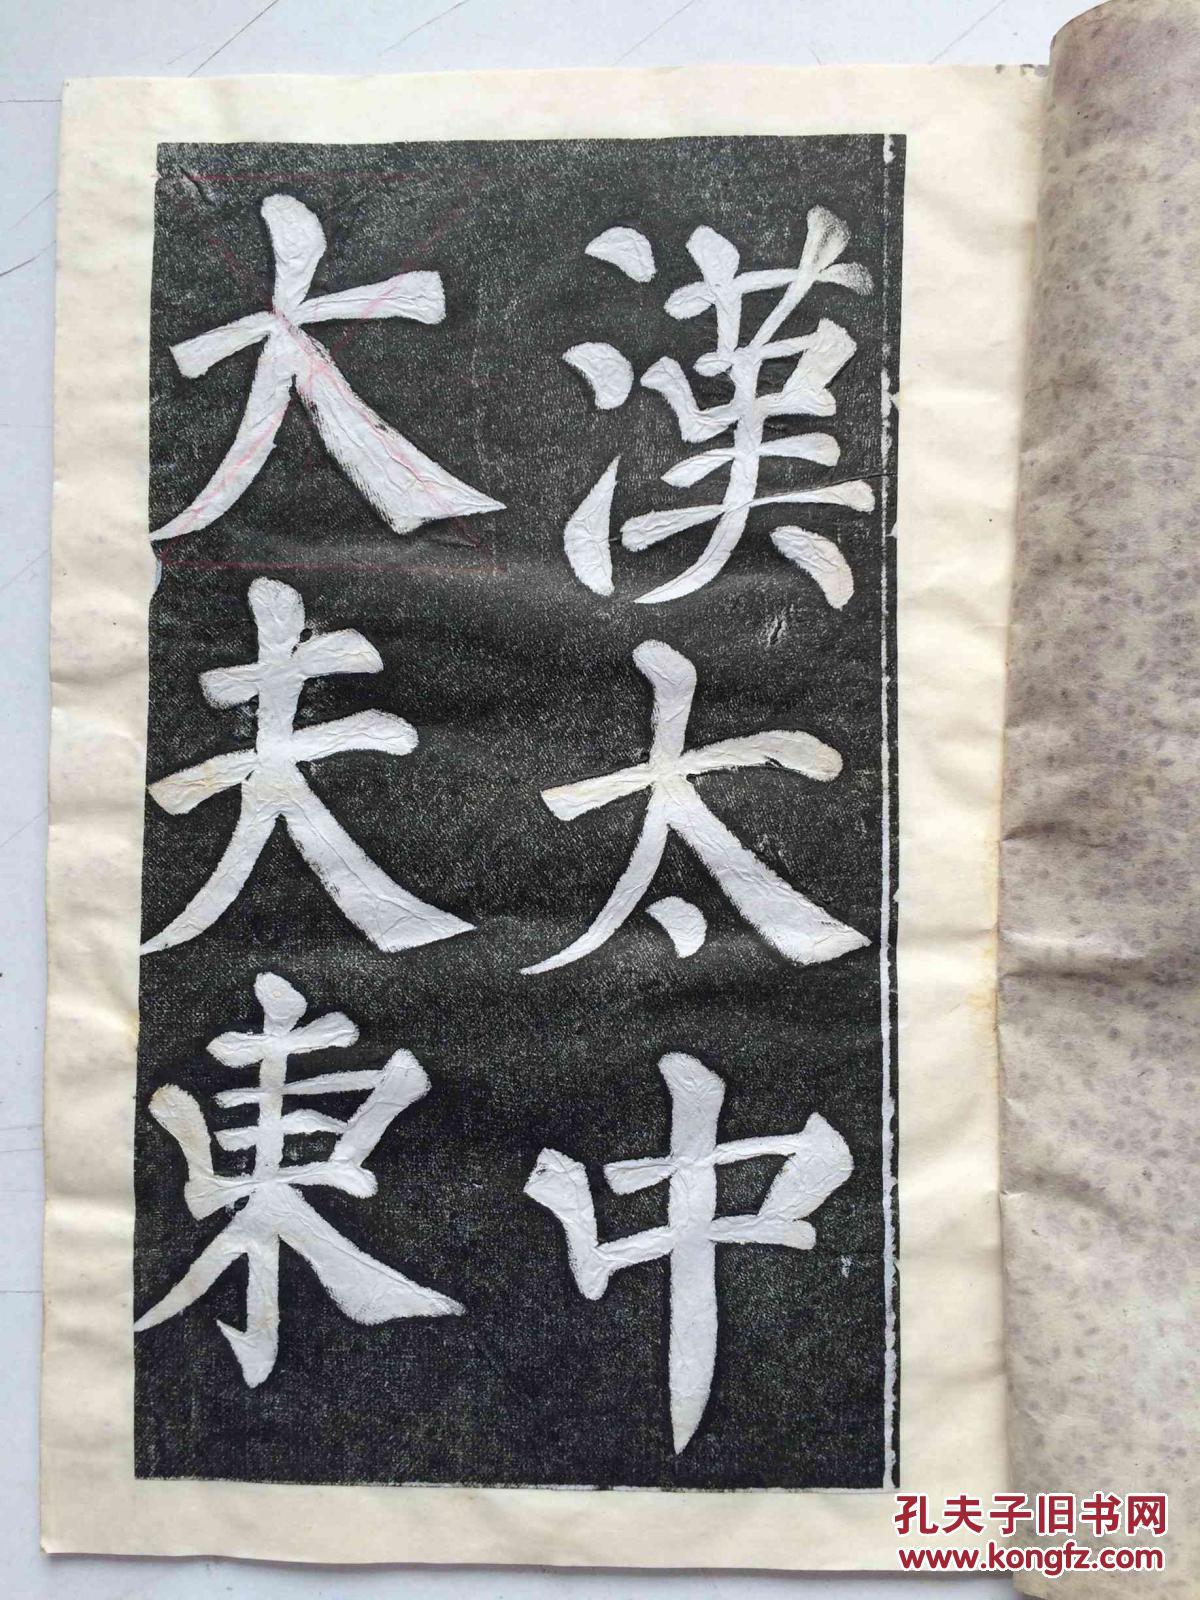 漢太中
大夫東
孔夫子旧书网
www.kongfz.com